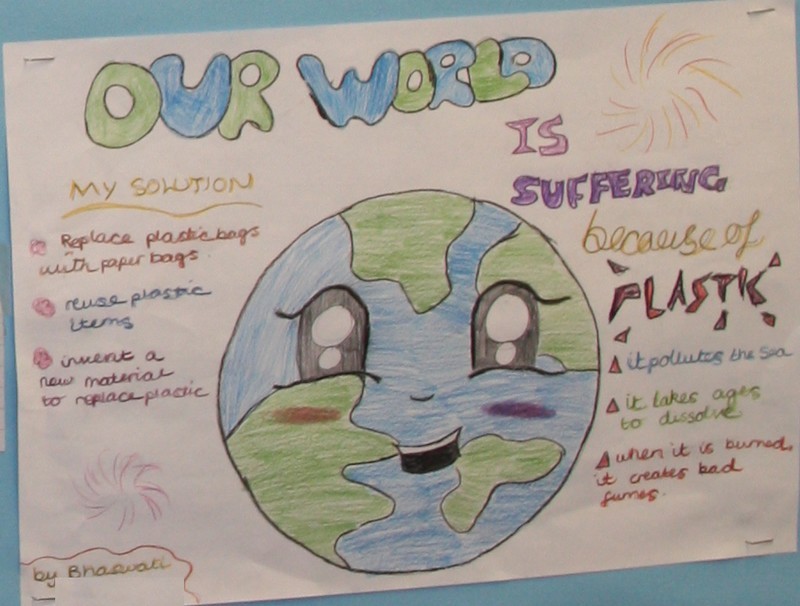 OUR WORLD
IS
SUFFERING
because of
PLASTIC
it pollutes the sea
it takes ages
to dissolve
when it is burned,
it creates bad
fumes.
MY SOLUTION
Replace plastic bags
with paper bags.
reuse plastic
items
invent a
new material
to replace plastic
by Bhaswati